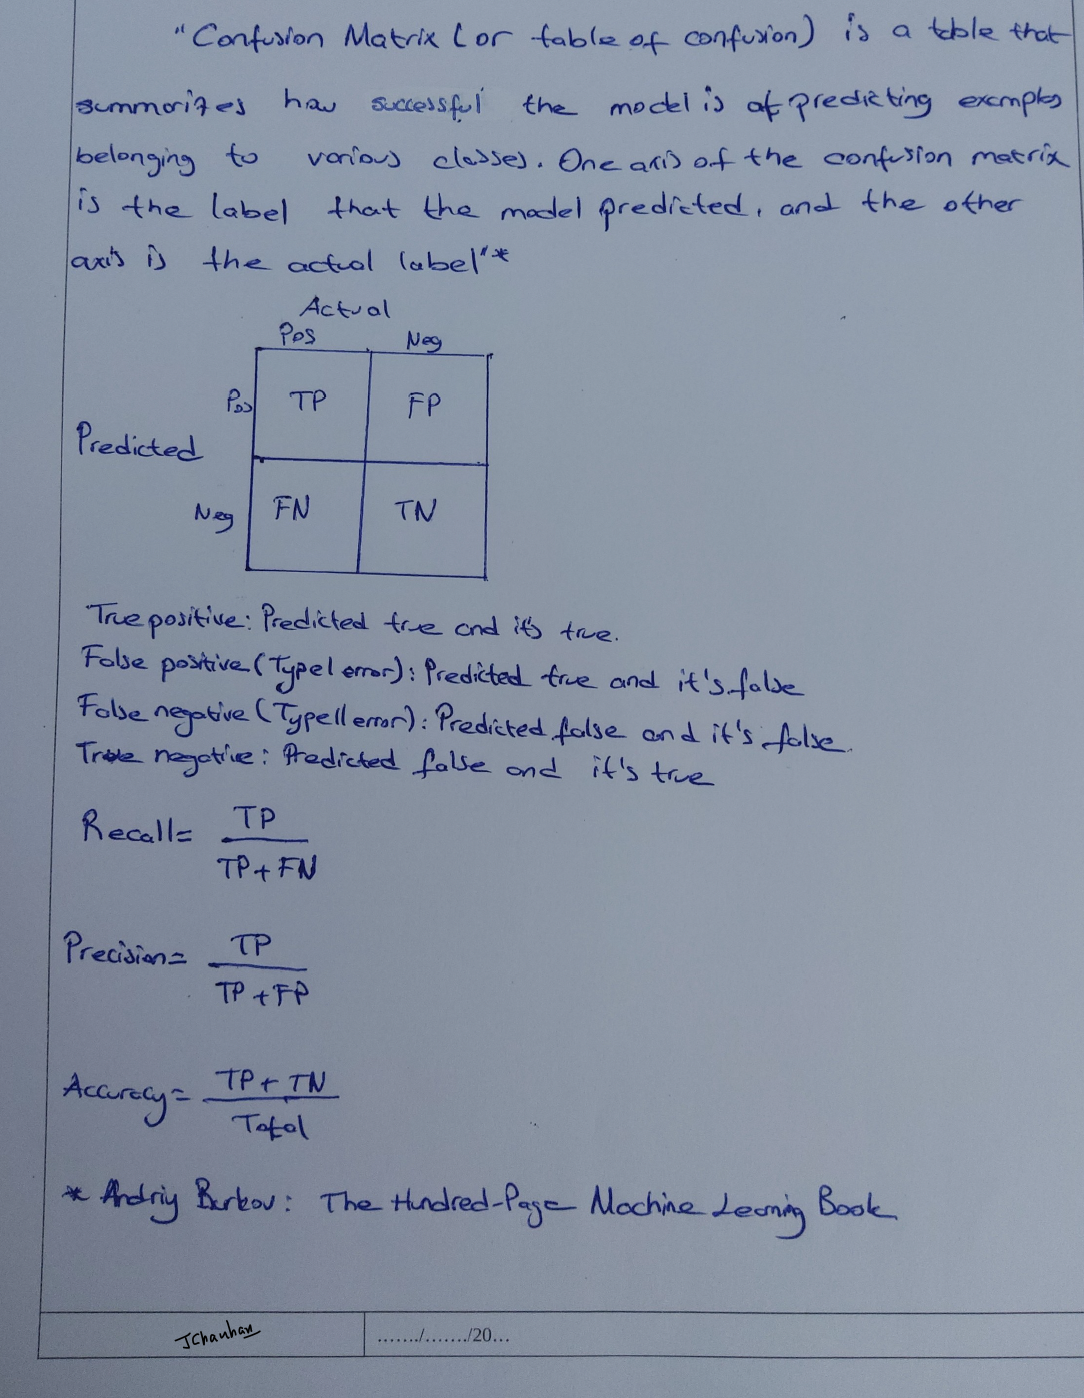 "Confusion Matrix (or table of confusion) is a table that
summarizes how successful the model is at predicting examples
belonging to various classes. One axis of the confusion matrix
is the label that the model predicted, and the other
axis is the actual label"*
Actual
Pos Neg
Pos TP FP
Predicted
Neg FN TN
True positive: Predicted true and it's true.
False positive (Type I error): Predicted true and it's false
False negative (Type II error): Predicted false and it's false.
True negative: Predicted false and it's true
Recall= TP
TP+FN
Precision= TP
TP+FP
Accuracy= TP+TN
Total
* Andriy Burkov: The Hundred-Page Machine Learning Book
JChauhan ......./......../20...